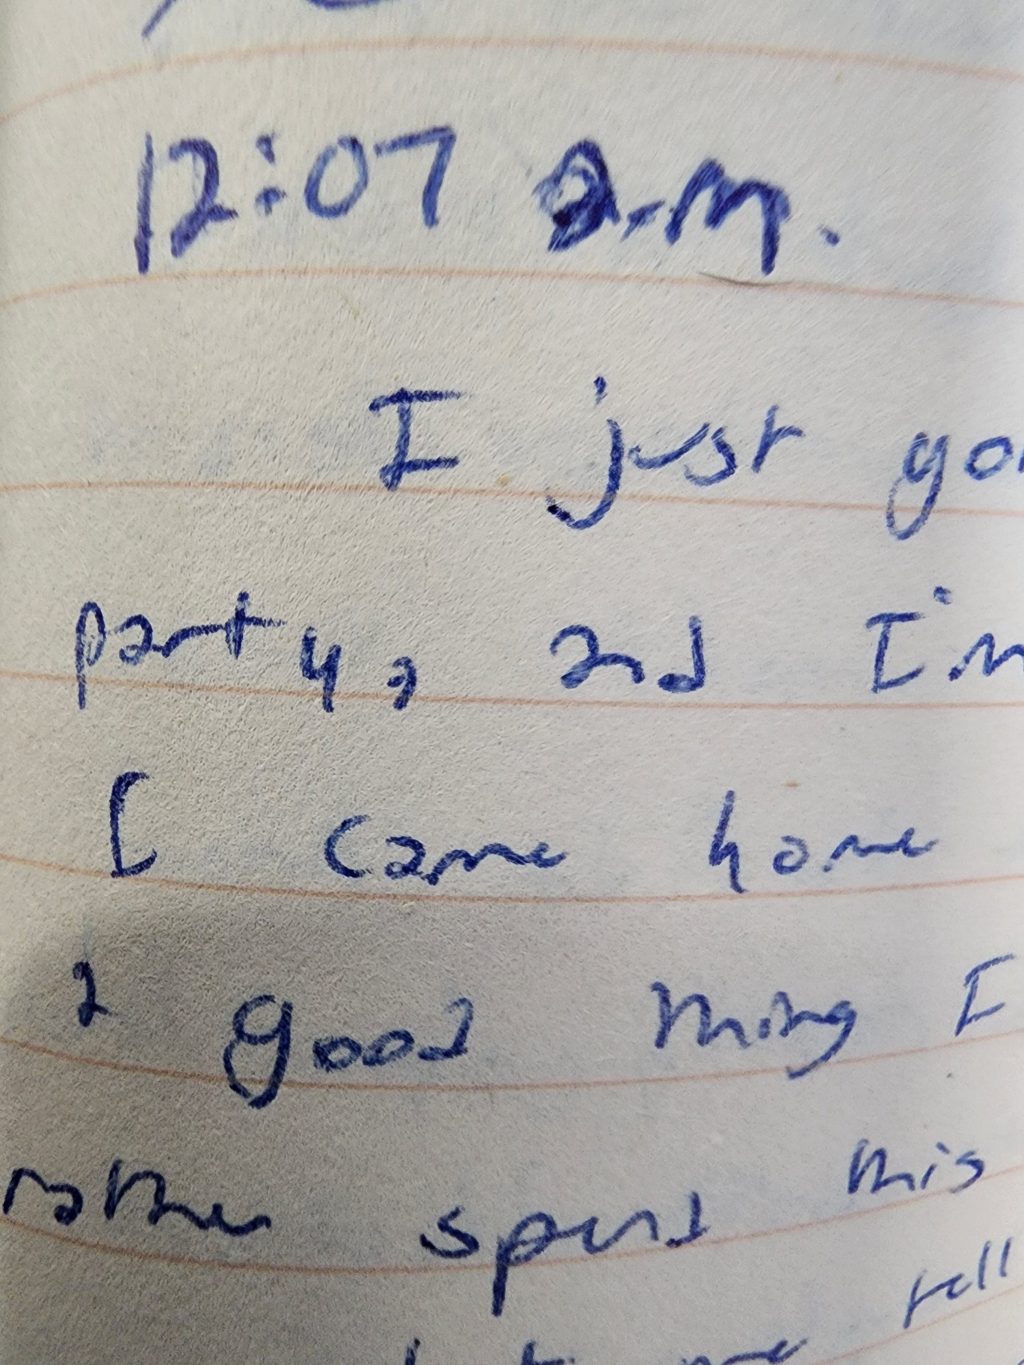 12:07 a.m.
I just go
party, and I'm
I came home
a good thing I
rather spend this
me tell